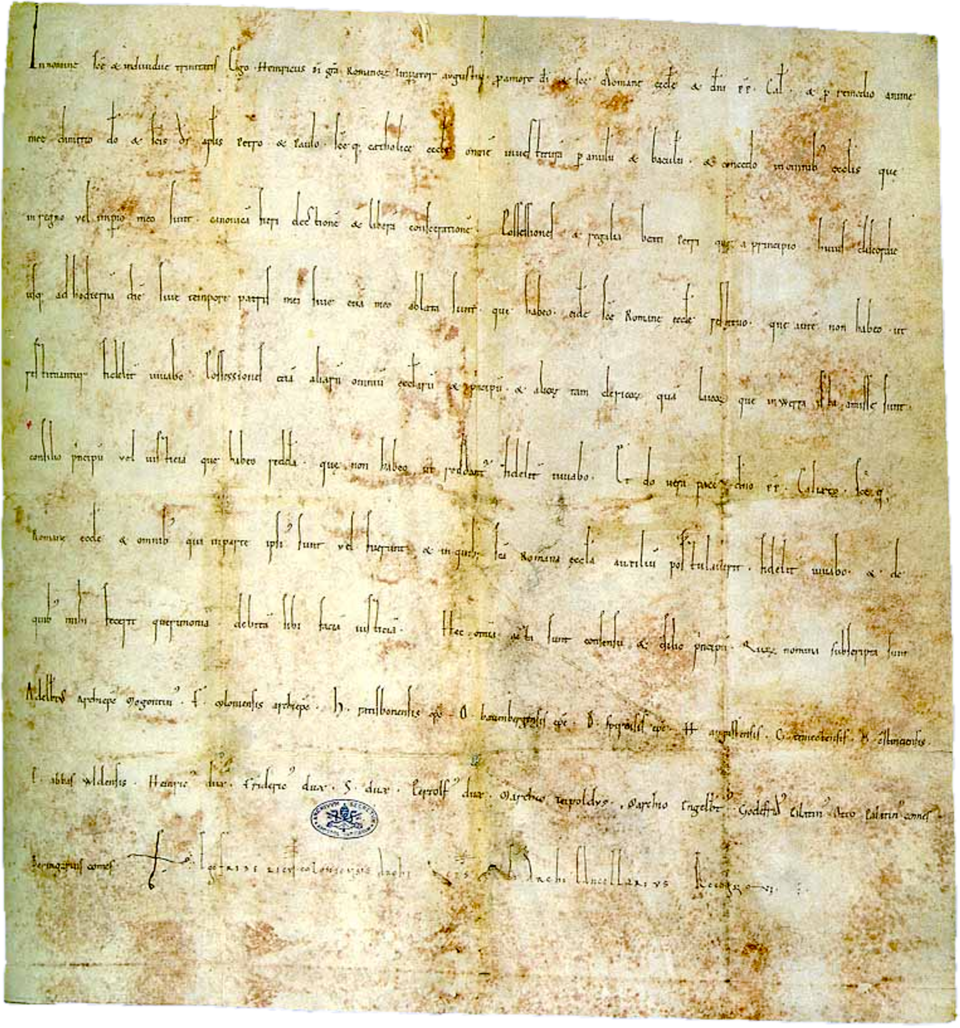 In nomine sce & individue trinitatis Ego Heinricus di gra Romanoꝝ Imperator augustus p amore di & sce Romane eccle & dni pp Cal & p remedio anime
mee dimitto do & scis di aplis Petro & Paulo sceq catholice eccle omne investitura p anulu & baculu & concedo in omnib ecclis que
in regno vel impio meo sunt canonica fieri electione & libera consecratione Possessiones & regalia beati Petri que a principio huius discordie
usq ad hodierna die sive tempore patris mei sive etia meo ablata sunt que habeo eide sce Romane eccle restituo que aute non habeo ut
restituantur fidelit iuvabo Possessiones etia aliaru omniu eccliaru & pncipu & alioꝝ tam clericoꝝ qua laicoꝝ que in werra ista amisse sunt
consilio pncipu vel iusticia que habeo redda que non habeo ut reddant fidelit iuvabo Et do vera pace dno pp Calixto sceq
Romane eccle & omnib qui in parte ipsi sunt vel fuerunt & in quib sca Romana eccla auxiliu postulaverit fidelit iuvabo & de
quib mihi fecerit querimonia debita sibi facia iusticia Hec omia acta sunt consensu & csilio pncipu Quoꝝ nomina subscripta sunt
Adelbtus archiepc mogontin F coloniensis archiepc H ratisbonensis epc O bauenbergensis epc B spirensis epc H augustensis G traiectensis
E abbas wldensis Heinric dux Frideric dux S dux Pertolf dux Marchio teipoldus Marchio Engelbt Godefrid Palatin Otto Palatin comes
Beringarius comes
ARCHIVVM SECRETVM